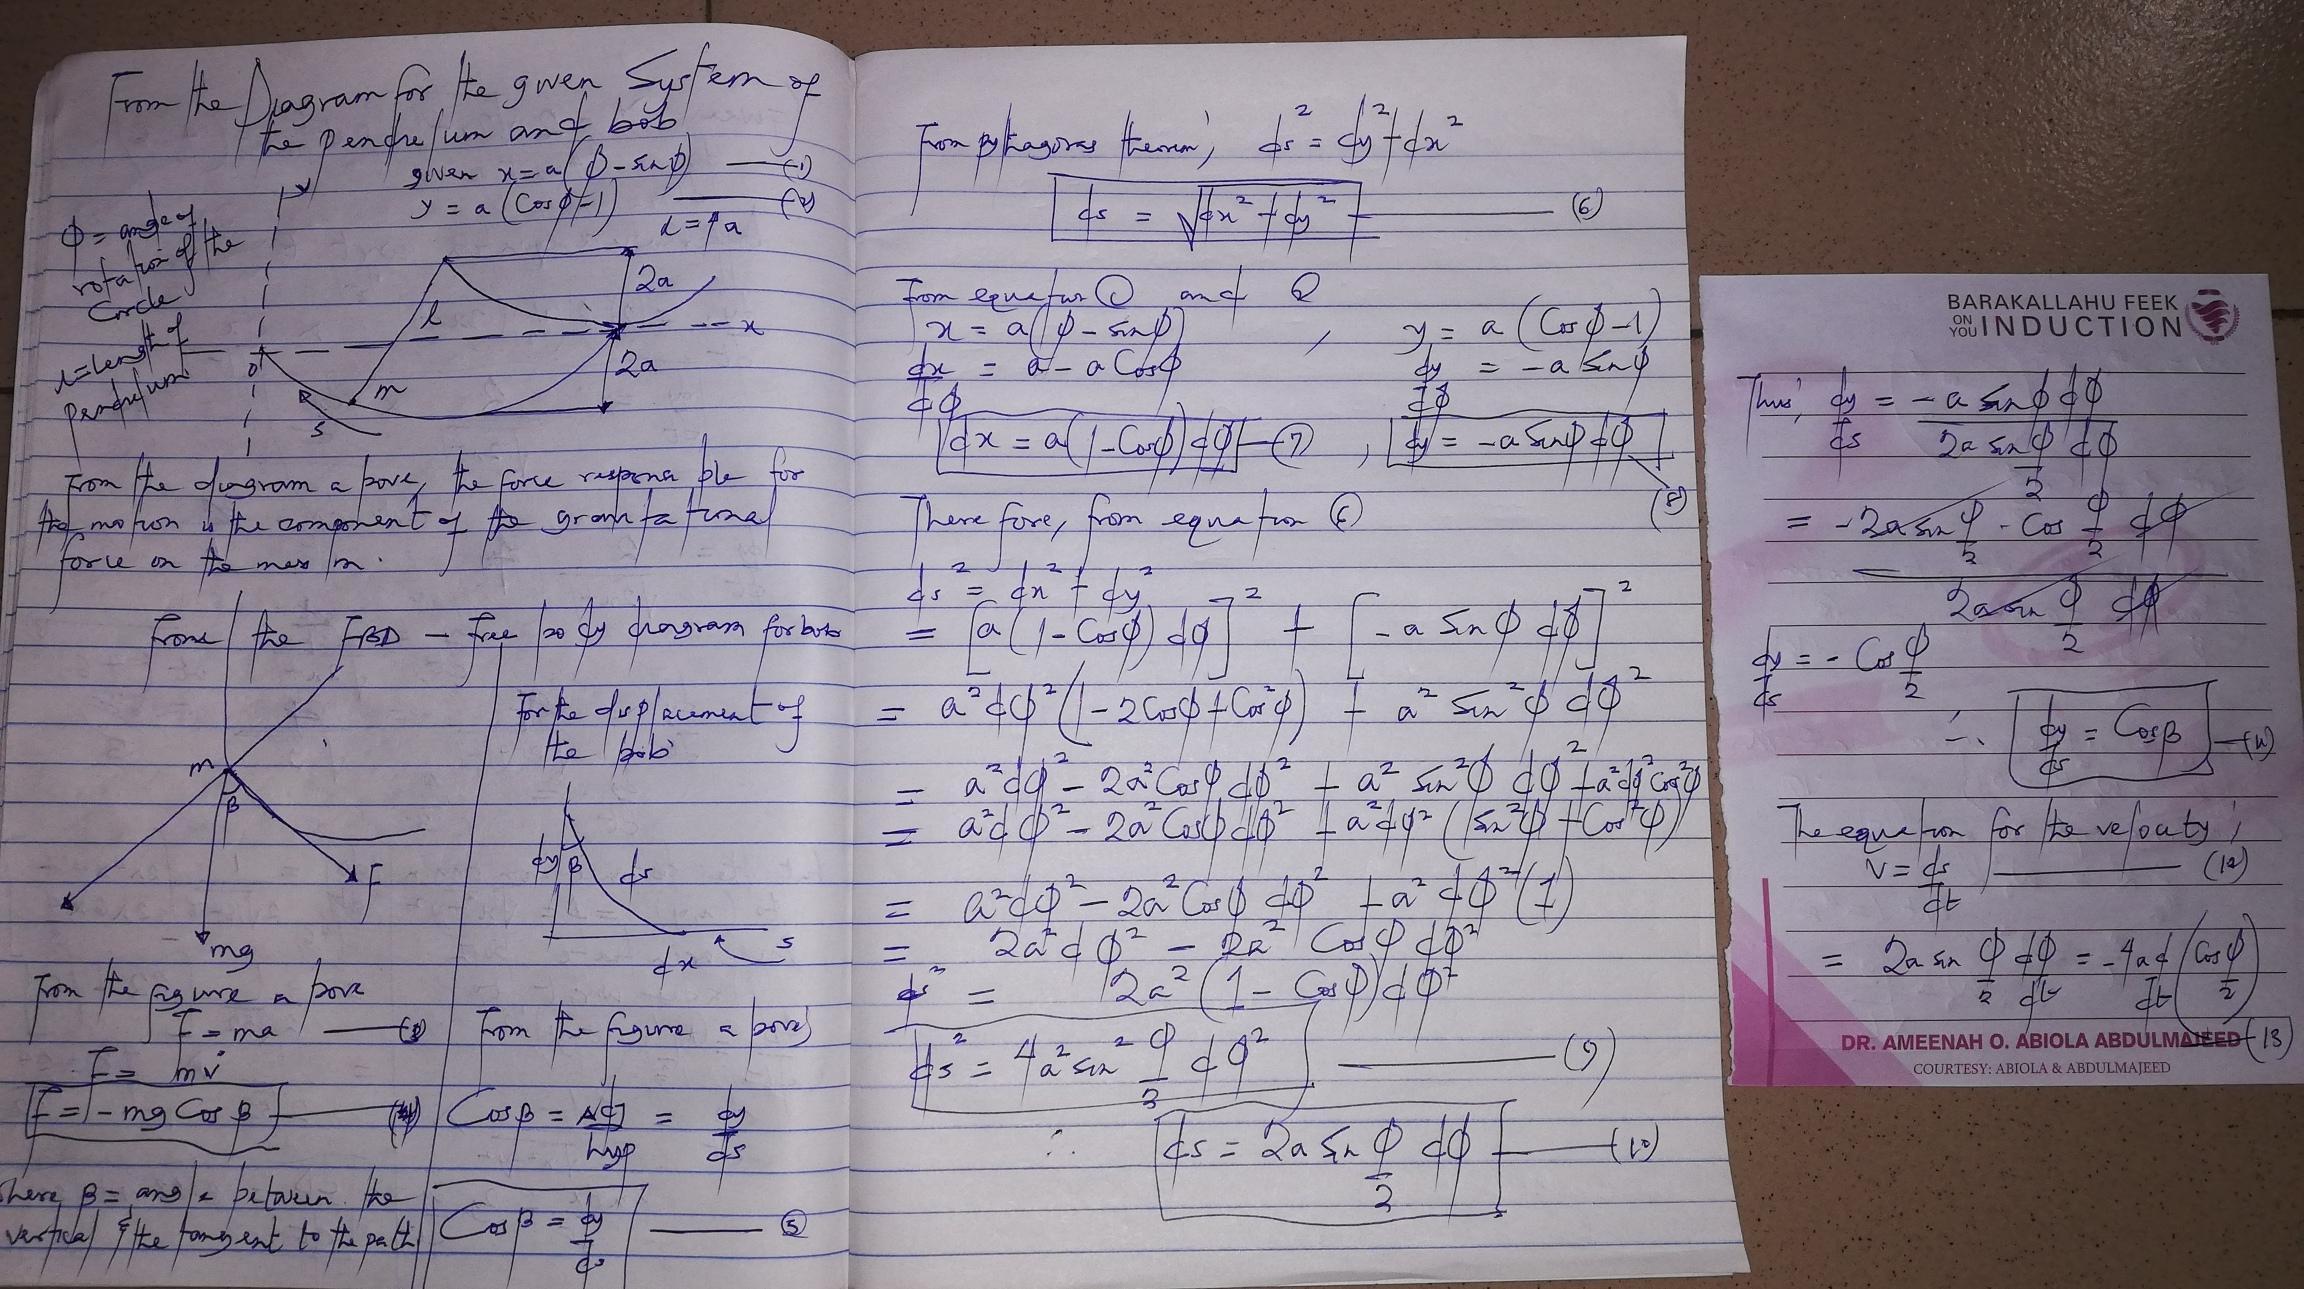 From the Diagram for the given System of
the pendulum and bob
given x = a(ϕ - sinϕ) —— (1)
y = a(Cosϕ-1) —— (2)
l = 4a
ϕ = angle of
rotation of the
Circle
l = length of
pendulum
2a
l
x
2a
0
m
s
From the diagram above, the force responsible for
the motion is the component of the gravitational
force on the mass m.
From the FBD - free body diagram for bob
m
β
F
mg
For the displacement of
the bob
dy
β
ds
dx
s
From the figure above
F = ma —— (3)
F = mv̇
F = -mg Cos β —— (4)
where β = angle between the
vertical & the tangent to the path
From the figure above,
Cos β = Adj/hyp = dy/ds
Cos β = dy/ds —— (5)
From pythagoras theorem, ds² = dy² + dx²
ds = √dx² + dy² —— (6)
From equation ① and ②
x = a(ϕ - sinϕ) , y = a(Cosϕ-1)
dx/dϕ = a - a Cosϕ dy/dϕ = -a sinϕ
dx = a(1-Cosϕ)dϕ —(7) , dy = -a Sinϕ dϕ (8)
Therefore, from equation ⑥
ds² = dx² + dy²
= [a(1-Cosϕ)dϕ]² + [-a sinϕ dϕ]²
= a²dϕ²(1-2Cosϕ+Cos²ϕ) + a² sin²ϕ dϕ²
= a²dϕ² - 2a²Cosϕ dϕ² + a² sin²ϕ dϕ² + a²dϕ²cos²ϕ
= a²dϕ² - 2a²Cosϕdϕ² + a²dϕ² (sin²ϕ + Cos²ϕ)
= a²dϕ² - 2a²Cosϕ dϕ² + a² dϕ²(1)
= 2a²dϕ² - 2a² Cosϕ dϕ²
ds² = 2a²(1 - Cosϕ)dϕ²
ds² = 4a² sin² ϕ/2 dϕ² —— (9)
∴ ds = 2a Sin ϕ/2 dϕ —— (10)
BARAKALLAHU FEEK
ON YOU INDUCTION
Thus, dy/ds = -a sinϕ dϕ / 2a sin ϕ/2 dϕ
= -2a sin ϕ/2 · Cos ϕ/2 dϕ / 2a sin ϕ/2 dϕ
dy/ds = - Cos ϕ/2
∴ dy/ds = Cosβ —(11)
The equation for the velocity,
V = ds/dt —— (12)
= 2a sin ϕ/2 dϕ/dt = -4a d/dt (Cos ϕ/2) —(13)
DR. AMEENAH O. ABIOLA ABDULMAJEED
COURTESY: ABIOLA & ABDULMAJEED